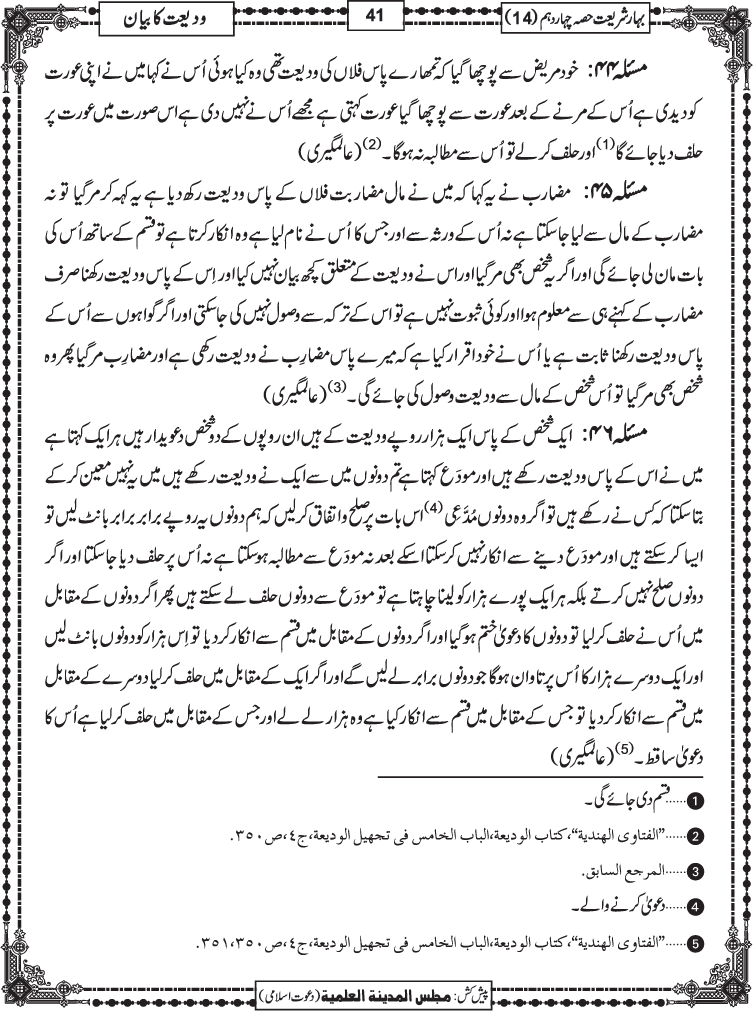 بہارِ شریعت حصہ چہاردہم (14)
41
ودیعت کا بیان
مسئلہ ۴۴: خود مریض سے پوچھا گیا کہ تمھارے پاس فلاں کی ودیعت تھی وہ کیا ہوئی اُس نے کہا میں نے اپنی عورت
کو دیدی ہے اُس کے مرنے کے بعد عورت سے پوچھا گیا عورت کہتی ہے مجھے اُس نے نہیں دی ہے اس صورت میں عورت پر
حلف دیا جائے گا(1) اور حلف کرلے تو اُس سے مطالبہ نہ ہوگا۔(2) (عالمگیری)
مسئلہ ۴۵: مضارب نے یہ کہا کہ میں نے مال مضاربت فلاں کے پاس ودیعت رکھ دیا ہے یہ کہہ کر مرگیا تو نہ
مضارب کے مال سے لیا جاسکتا ہے نہ اُس کے ورثہ سے اور جس کا اُس نے نام لیا ہے وہ انکار کرتا ہے تو قسم کے ساتھ اُس کی
بات مان لی جائے گی اور اگر یہ شخص بھی مرگیا اور اس نے ودیعت کے متعلق کچھ بیان نہیں کیا اور اِس کے پاس ودیعت رکھنا صرف
مضارب کے کہنے ہی سے معلوم ہوا اور کوئی ثبوت نہیں ہے تو اس کے ترکہ سے وصول نہیں کی جاسکتی اور اگر گواہوں سے اُس کے
پاس ودیعت رکھنا ثابت ہے یا اُس نے خود اقرار کیا ہے کہ میرے پاس مضارِب نے ودیعت رکھی ہے اور مضارِب مرگیا پھر وہ
شخص بھی مرگیا تو اُس شخص کے مال سے ودیعت وصول کی جائے گی۔(3) (عالمگیری)
مسئلہ ۴۶: ایک شخص کے پاس ایک ہزار روپے ودیعت کے ہیں ان روپوں کے دو شخص دعویدار ہیں ہر ایک کہتا ہے
میں نے اس کے پاس ودیعت رکھے ہیں اور مودَع کہتا ہے تم دونوں میں سے ایک نے ودیعت رکھے ہیں میں یہ نہیں معین کرکے
بتا سکتا کہ کس نے رکھے ہیں تو اگر وہ دونوں مُدَّعِی(4) اس بات پر صلح و اتفاق کرلیں کہ ہم دونوں یہ روپے برابر برابر بانٹ لیں تو
ایسا کرسکتے ہیں اور مودَع دینے سے انکار نہیں کرسکتا اسکے بعد نہ مودَع سے مطالبہ ہوسکتا ہے نہ اُس پر حلف دیا جاسکتا اور اگر
دونوں صلح نہیں کرتے بلکہ ہر ایک پورے ہزار کو لینا چاہتا ہے تو مودَع سے دونوں حلف لے سکتے ہیں پھر اگر دونوں کے مقابل
میں اُس نے حلف کرلیا تو دونوں کا دعویٰ ختم ہوگیا اور اگر دونوں کے مقابل میں قسم سے انکار کردیا تو اِس ہزار کو دونوں بانٹ لیں
اور ایک دوسرے ہزار کا اُس پر تاوان ہوگا جو دونوں برابر لے لیں گے اور اگر ایک کے مقابل میں حلف کرلیا دوسرے کے مقابل
میں قسم سے انکار کردیا تو جس کے مقابل میں قسم سے انکار کیا ہے وہ ہزار لے لے اور جس کے مقابل میں حلف کرلیا ہے اُس کا
دعویٰ ساقط۔(5) (عالمگیری)
1 ......قسم دی جائے گی۔
2 ......"الفتاوى الهندية"،كتاب الوديعة،الباب الخامس في تجهيل الوديعة،ج٤،ص٣٥٠.
3 ......المرجع السابق.
4 ......دعویٰ کرنے والے۔
5 ......"الفتاوى الهندية"،كتاب الوديعة،الباب الخامس في تجهيل الوديعة،ج٤،ص٣٥٠،٣٥١.
پیش کش: مجلس المدينة العلمية (دعوت اسلامی)